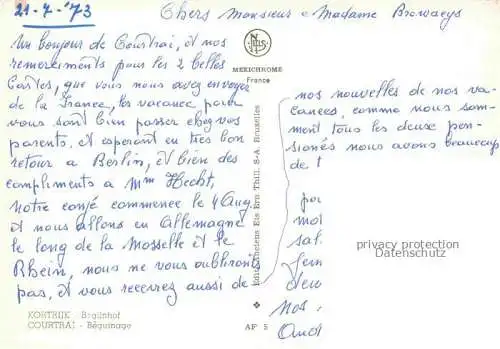 21-7-'73
Chers Monsieur e Madame Browaeys
Un bonjour de Courtrai, et nos
remerciments pour les 2 belles
Cartes, que vous nous avez envoyer
de la France, les vacance pour
vous sont bien passer chez vos
parents, et esperant en très bon
retour a Berlin, et bien des
compliments a Mm Hecht,
Notre conjé commence le 4 Aug
et nous allons en Allemagne
le long de la Mosselle et le
Rhein, nous ne vous oublironts
pas, et vous recevrez aussi de
KORTRIJK - Begijnhof
COURTRAI - Béguinage
MEXICHROME
France
Edit. Thill. S-A. Bruxelles
AF 5
nos nouvelles de nos va-
cances, comme nous som-
ment tous les deux pen-
sionés nous avons beaucoup
de t
pou
mol
sal
Nos
privacy protection
Datenschutz